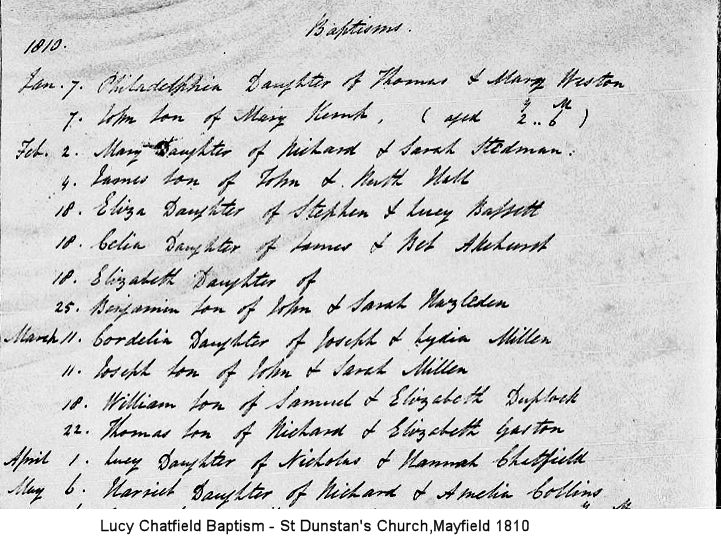 Baptisms.
1810.
Jan. 7. Philadelphia Daughter of Thomas & Mary Weston
7. John son of Mary Kemp, ( aged 2 Y .. 6 M )
Feb. 2. Mary Daughter of Richard & Sarah Stedman.
4. James son of John & Ruth Hall
18. Eliza Daughter of Stephen & Lucy Bassett
18. Celia Daughter of James & Bet Akehurst
18. Elizabeth Daughter of
25. Benjamin son of John & Sarah Hazleden
March 11. Cordelia Daughter of Joseph & Lydia Millen
11. Joseph son of John & Sarah Millen
18. William son of Samuel & Elizabeth Duplock
22. Thomas son of Richard & Elizabeth Gaston
April 1. Lucy Daughter of Nicholas & Hannah Chatfield
May 6. Harriet Daughter of Richard & Amelia Collins
Lucy Chatfield Baptism - St Dunstan's Church,Mayfield 1810